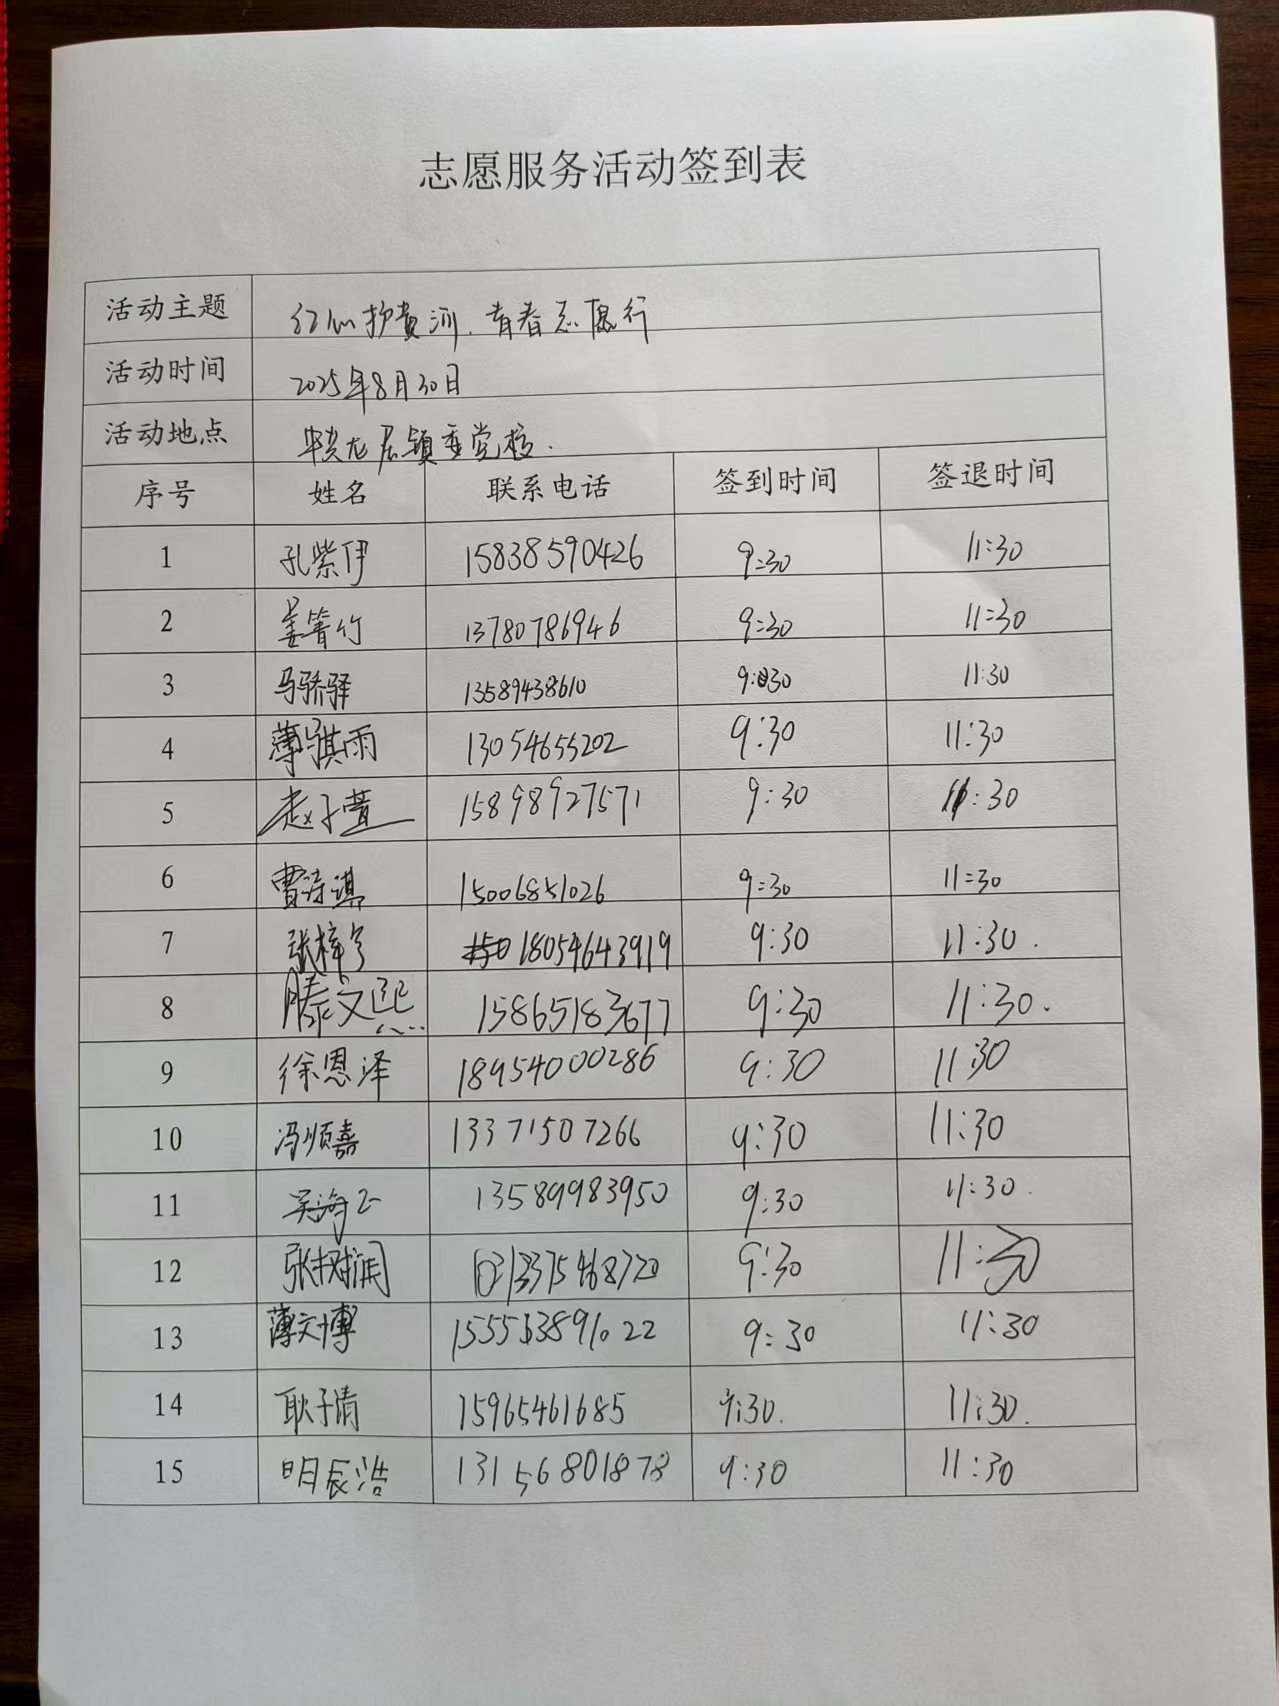 志愿服务活动签到表
活动主题 红心护黄河.青春志愿行
活动时间 2025年8月30日
活动地点 龙居镇委党校.
序号 姓名 联系电话 签到时间 签退时间
1 孔紫伊 15838590426 9:30 11:30
2 姜箐竹 13780786946 9:30 11:30
3 马骄驿 13589438610 9:30 11:30
4 薄骐雨 13054655202 9:30 11:30
5 赵子萱 15898927571 9:30 11:30
6 曹诗淇 15006851026 9:30 11:30
7 张梓 18054643919 9:30 11:30.
8 滕文熙 15865183677 9:30 11:30.
9 徐恩泽 18954000286 9:30 11:30
10 冯顺嘉 13371507266 9:30 11:30
11 吴海 13589983950 9:30 11:30.
12 张树润 9:30 11:30
13 薄文博 9:30 11:30
14 耿子清 15965461685 9:30. 11:30.
15 明辰浩 13156801878 9:30 11:30